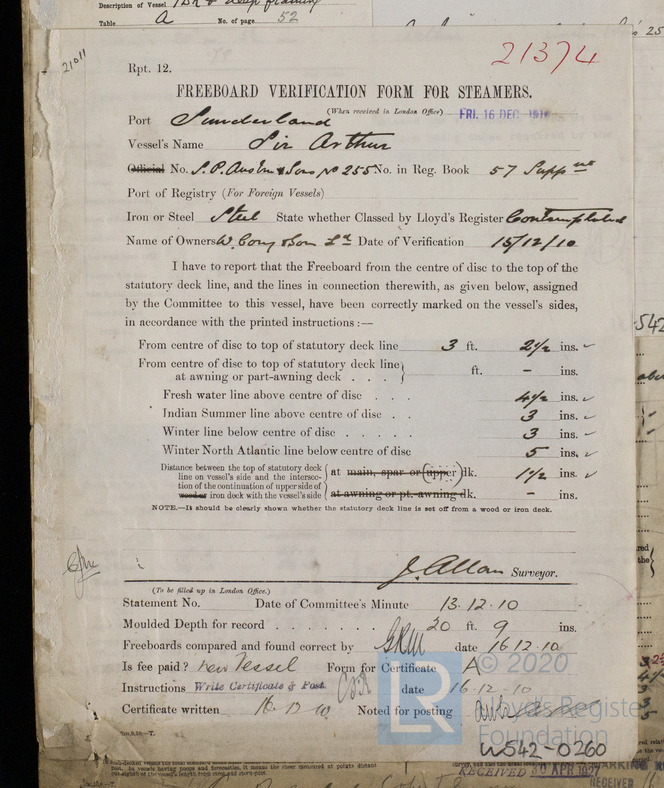 Description of Vessel 1Dk & deep framing
Table A No. of page 52
21011
21374
Rpt. 12.
FREEBOARD VERIFICATION FORM FOR STEAMERS.
(When received in London Office) FRI. 16 DEC. 1910
Port Sunderland
Vessel's Name Sir Arthur
Official No. S.P. Austin & Sons No 255 No. in Reg. Book 57 Suppnt
Port of Registry (For Foreign Vessels)
Iron or Steel Steel State whether Classed by Lloyd's Register Contemplated
Name of Owners W. Cory & Son Ld Date of Verification 15/12/10
I have to report that the Freeboard from the centre of disc to the top of the
statutory deck line, and the lines in connection therewith, as given below, assigned
by the Committee to this vessel, have been correctly marked on the vessel's sides,
in accordance with the printed instructions :—
From centre of disc to top of statutory deck line 3 ft. 2½ ins.
From centre of disc to top of statutory deck line
at awning or part-awning deck . . . ft. – ins.
Fresh water line above centre of disc . . . 4½ ins.
Indian Summer line above centre of disc . . 3 ins.
Winter line below centre of disc . . . . . 3 ins.
Winter North Atlantic line below centre of disc 5 ins.
Distance between the top of statutory deck
line on vessel's side and the intersec-
tion of the continuation of upper side of
wood or iron deck with the vessel's side
at main, spar or (upper) dk. 1½ ins.
at awning or pt. awning dk. – ins.
NOTE.—It should be clearly shown whether the statutory deck line is set off from a wood or iron deck.
J. Allan Surveyor.
(To be filled up in London Office.)
Statement No. Date of Committee's Minute 13.12.10
Moulded Depth for record . . . . . . . 20 ft. 9 ins.
Freeboards compared and found correct by GRM date 16.12.10
Is fee paid? New Vessel Form for Certificate A
Instructions Write Certificate & Post date 16.12.10
Certificate written 16.12.10 Noted for posting
LR
© 2020
Lloyd's Register
Foundation
W542-0260
RECEIVED 30 APR 1957
RECEIVED